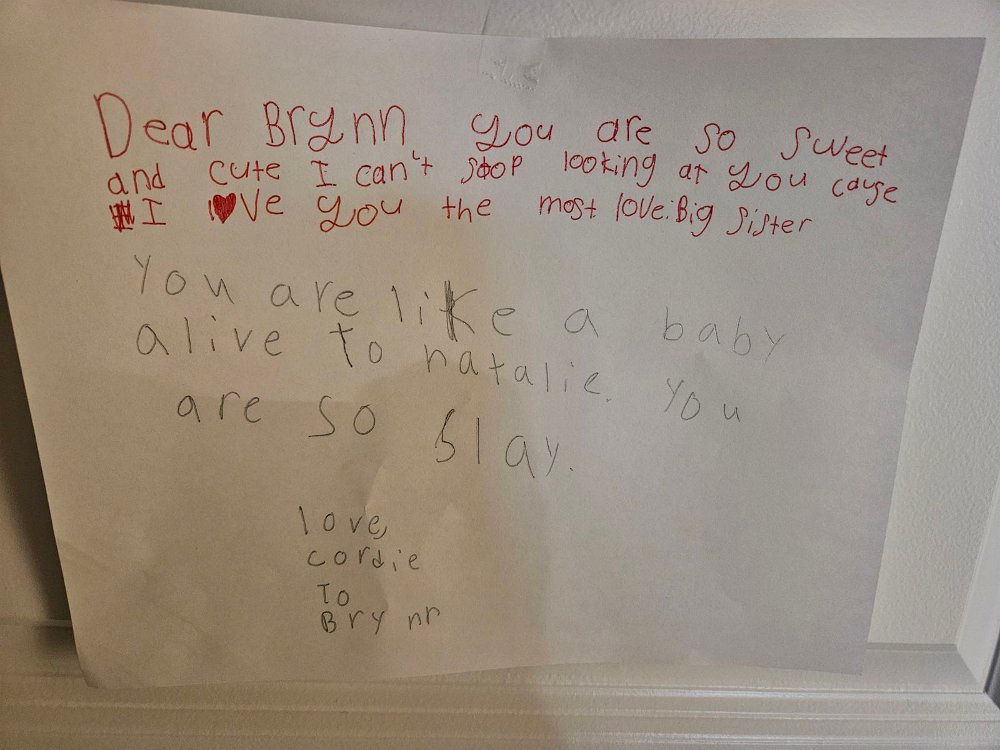 Dear Brynn you are so sweet
and cute I can't stop looking at you cause
I l♥ve you the most love: Big sister
you are like a baby
alive to natalie. you
are so slay.
love,
cordie
To
Brynn